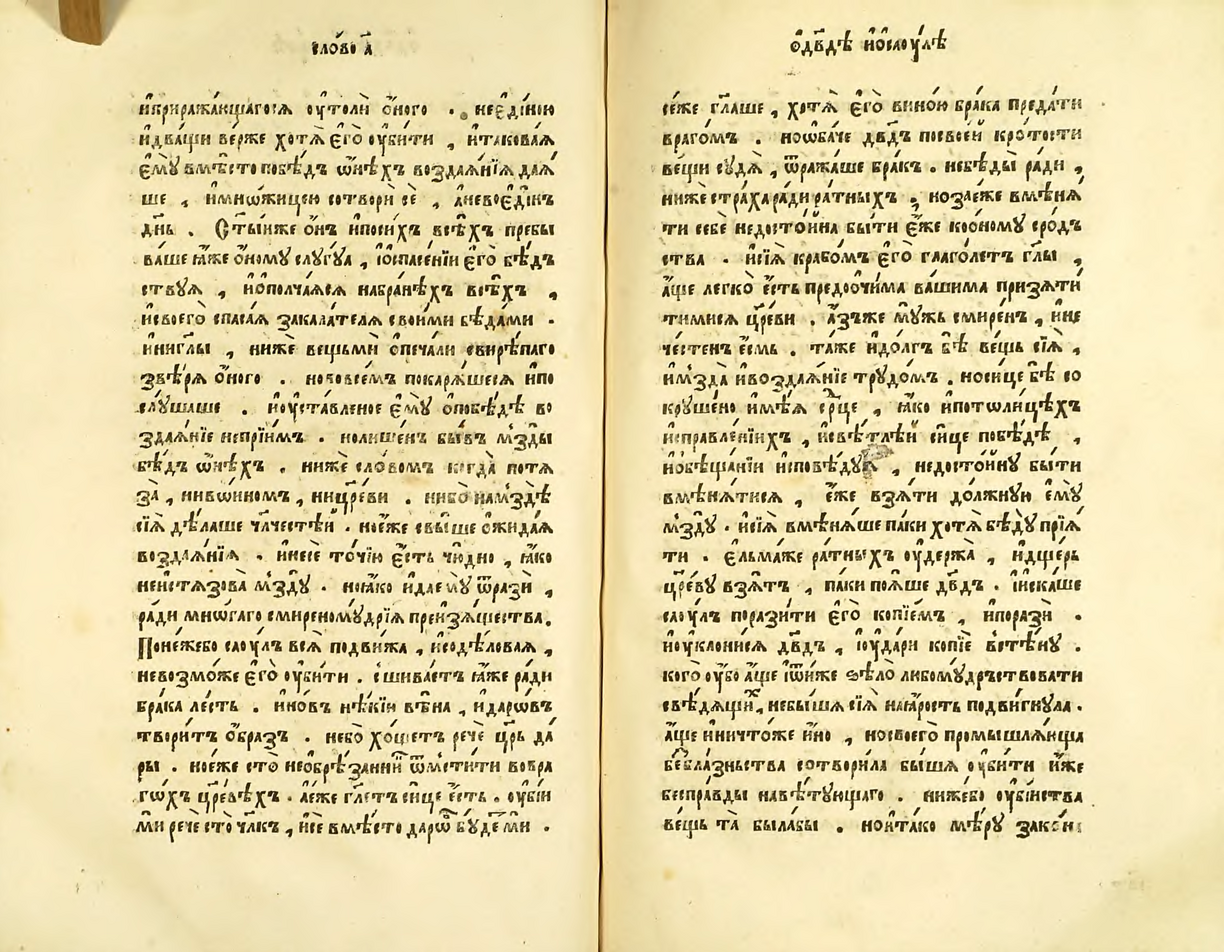 сло́во а҃
и҆приража́ющагося ᲂу҆толѝ ѻ҆ного . не є҆ди́ною
и҆два́щи ве́рже хотѧ̀ є҆го̀ ᲂу҆би́ти , и҆такова́ѧ
є҆мꙋ̀ вмѣ́сто побѣ́дъ ѡ҆нѣ́хъ воздаѧ́нїѧ даѧ́
ше , и҆мно́жицею сотвори се̏ , а҆невъе҆ди́нъ
дн҃ь . Ст҃ы́иже ѻ҆нъ и҆поси́хъ всѣ́хъ пребы
ва́ше ꙗ҆́же ѻ҆ному слꙋгꙋ́а , і҆ѻспасе́нїи є҆го̀ бѣ́д
ствꙋѧ , и҆ѻполча́ѧсѧ набра́нѣхъ всѣ́хъ ,
и҆своего̀ спаса́ѧ закала́телѧ свои́ми бѣ́дами .
и҆ни гл҃ы , нижѐ вещьмѝ ѻ҆печа́ли свирѣ́паго
звѣ́рѧ ѻ҆ного . но во всѐмъ покарѧ́ѧсѧ и҆по
слꙋ́шаше . и҆ᲂу҆ста́вленое є҆мꙋ̀ ѻ҆побѣ́дѣ во
здаѧ́нїе непрїи́мъ . нолише́нъ бы́въ мꙁды̀
бѣ́дъ ѡ҆нѣ́хъ . нижѐ сло́вомъ когда̀ потѧ
за̀ , нивѡ́иномъ , ницр҃е́ви . ни бо намꙁдѣ̀
сїѧ̀ дѣ́лаше чл҃честѣ́й . ноє҆́же свы́ше ѻ҆жида́ѧ
воздаѧ́нїѧ . и҆несѐ то́чїю є҆́сть чю́дно , ꙗ҆́ко
неи҆стѧзова̀ мꙁдꙋ̀ . ноꙗ҆́ко и҆дае́мꙋ ѿразѝ ,
ра́ди мно́гаго смиреномꙋ́дрїѧ преизѧ́щества .
Поне́жебо саꙋ́лъ всѧ̀ подви́жа , и҆содѣ́ловаѧ ,
невозмо́же є҆го̀ ᲂу҆би́ти . сшива́етъ ꙗ҆́же ра́ди
бра́ка ле́сть . и҆но́въ нѣ́кїи вѣ́на , и҆даро́въ
твори́тъ ѻ҆́бразъ . небо хо́щетъ речѐ цр҃ь да
ры̀ . ноє҆́же сто̀ неѻ҆брѣ́занїи ѿмсти́ти вовра
гѡ́хъ цр҃е́вѣхъ . а҆е́же гл҃етъ си́це є҆́сть . ᲂу҆бїи
ми речѐ сто чл҃къ , и҆сѐ вмѣ́сто даро́в бꙋ́де ми .
ѻ҆дв҃дѣ и҆ѻсаꙋ́лѣ
се́же гл҃аше , хотѧ̀ є҆го̀ вино́ю бра́ка преда́ти
враго́мъ . но ѡ҆ба́че дв҃дъ посвое́й кро́тости
ве́щи сꙋдѧ̀ , ѿража́ше бра́къ . небѣды̀ ра́ди ,
ниже стра́ха ра́ди ра́тныхъ , нозае́же вмѣнѧ
ти себѐ недосто́йна бы́ти є҆́же коѻ҆номꙋ сро́д
ства . и҆сїѧ̀ крабо́мъ є҆го̀ глаго́летъ гл҃ы ,
а҆́ще легко̀ є҆́сть предоочи́ма ва́шима призѧ́ти
тимисѧ цр҃еви . а҆́зъже мꙋ́жь смире́нъ , и҆не
че́стенъ є҆́смь . та́же и҆до́лгъ бѣ̀ ве́щь сїѧ̀ ,
и҆мꙁда̀ и҆воздаѧ́нїе трꙋдо́мъ . но си́це бѣ̀ со
крꙋше́но и҆мѣ́ѧ ср҃це , ꙗ҆́ко и҆потоли́цѣхъ
и҆справле́нїихъ , и҆свѣ́тлѣй си́це побѣ́дѣ ,
и҆ѻбѣща́нїи и҆сповѣ́дꙋѧ , недосто́йнꙋ бы́ти
вмѣнѧ́тисѧ , є҆́же взѧ́ти до́лжнꙋю є҆мꙋ̀
мꙁдꙋ̀ . и҆сїѧ̀ вмѣнѧ́ше па́ки хотѧ̀ бѣдꙋ̀ прїѧ́
ти . є҆льма́же ра́тныхъ ᲂу҆держа̀ , и҆дще́рь
цр҃е́вꙋ взѧ́тъ , па́ки поѧ́ше дв҃дъ . і҆и҆ска́ше
саꙋ́лъ порази́ти є҆го̀ копїе́мъ , и҆поразѝ .
и҆ᲂу҆клони́сѧ дв҃дъ , і҆ᲂу҆да́ри копїѐ встѣ́нꙋ .
кого̀ ᲂу҆бо а҆́ще і҆ѿни́же ѕѣло̀ любомꙋ́дрьствовати
свѣ́дѧщи́х , небы́шѧ сїѧ̀ наꙗ҆́рость подви́гнꙋла .
а҆́ще и҆ничто́же и҆́но , носвоего̀ промышлѧ́юща
бе́блазньства сотвори́ла бы́шѧ ᲂу҆би́ти и҆́же
беспра́вды навѣтꙋ́ющаго . ни́жебо ᲂу҆бі́йства
ве́щь та̀ была́бы . но и҆та́ко мѣ́рꙋ зако́н